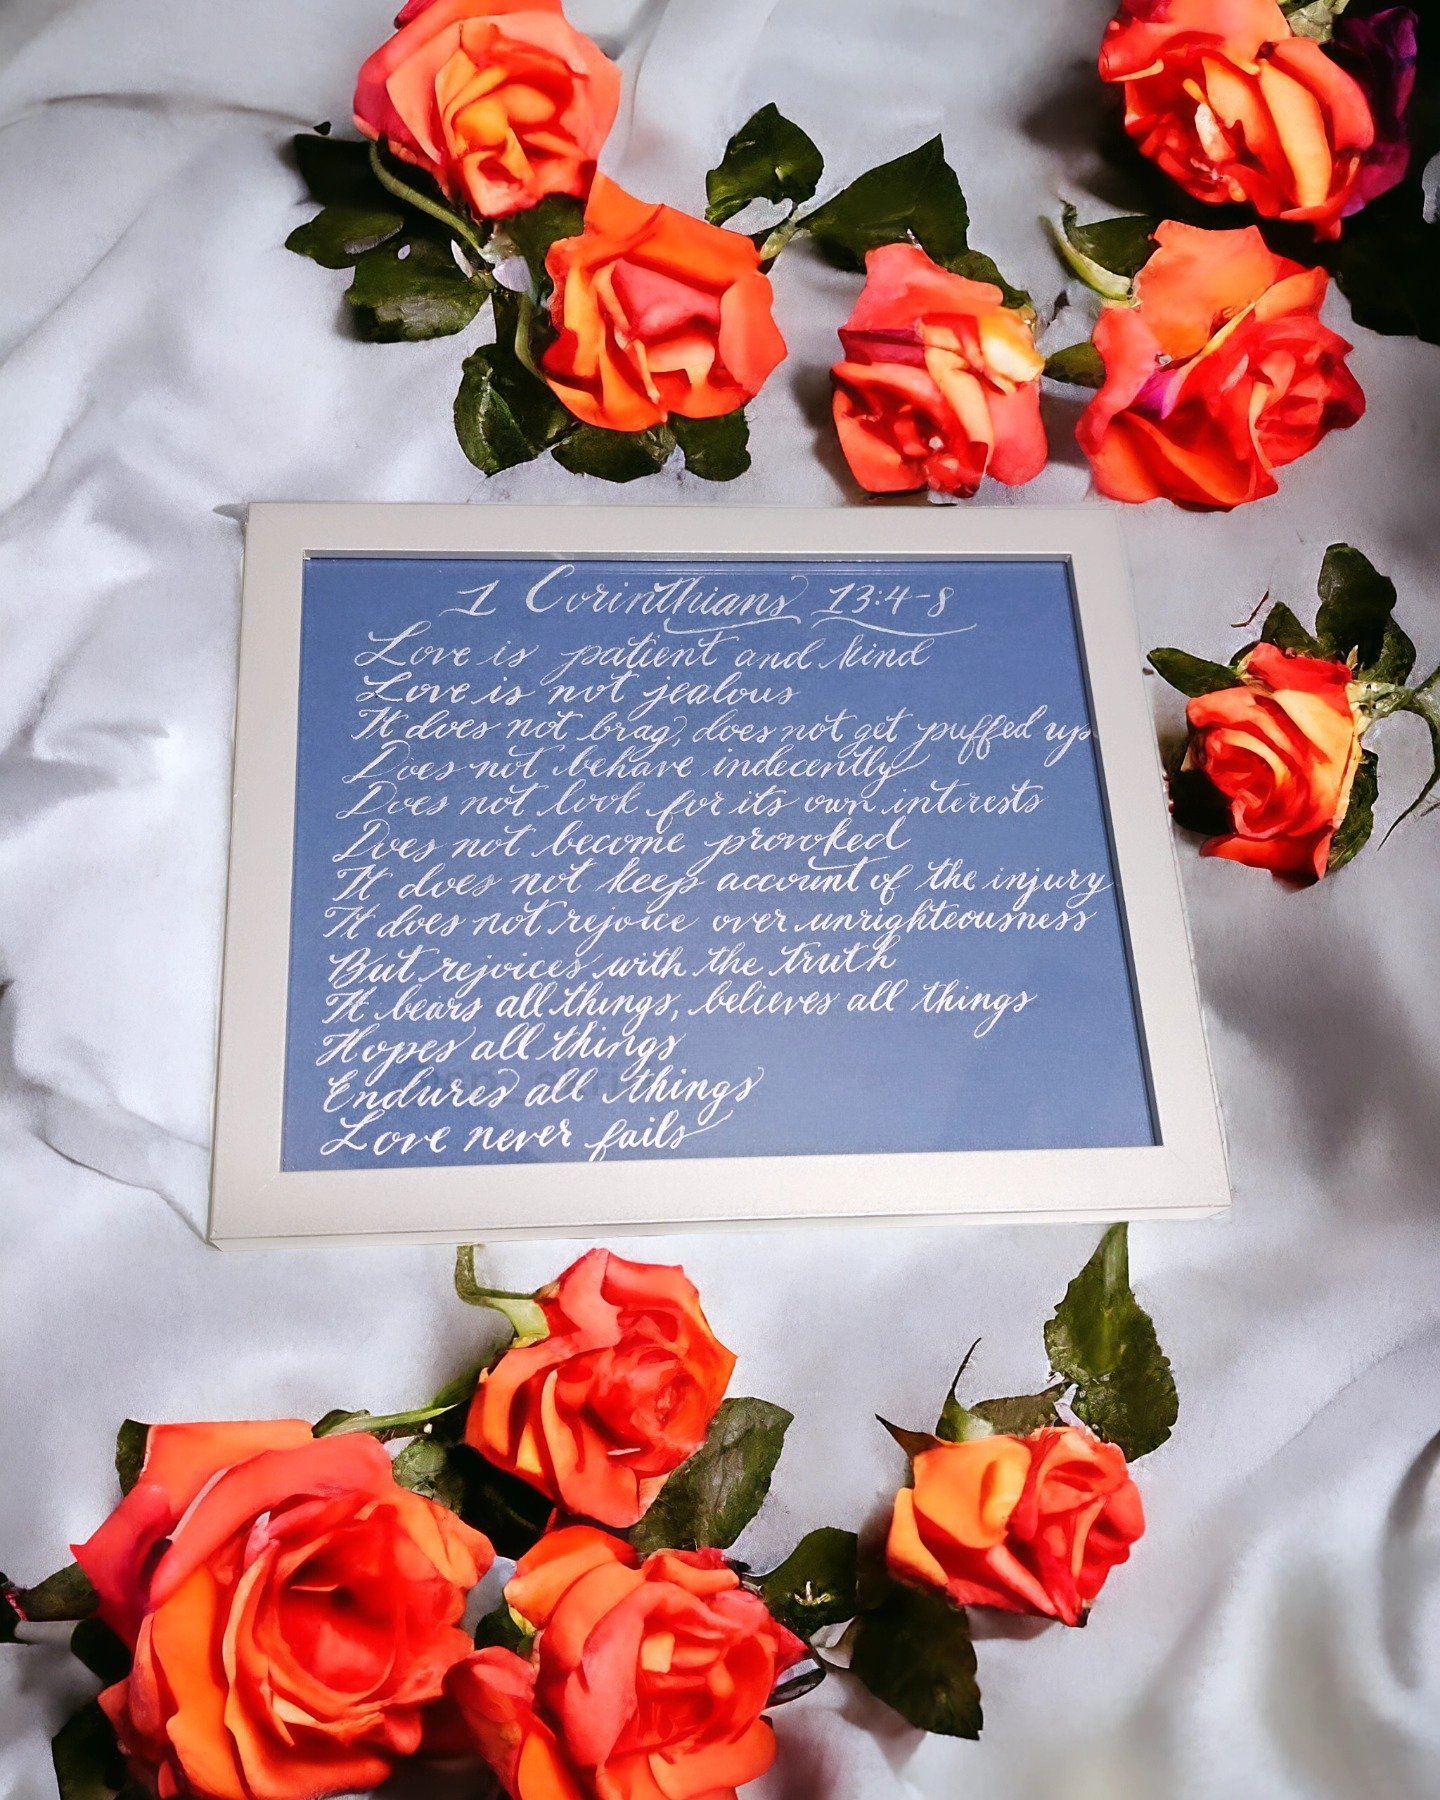 1 Corinthians 13:4-8
Love is patient and kind
Love is not jealous
It does not brag, does not get puffed up
Does not behave indecently
Does not look for its own interests
Does not become provoked
It does not keep account of the injury
It does not rejoice over unrighteousness
But rejoices with the truth
It bears all things, believes all things
Hopes all things
Endures all things
Love never fails